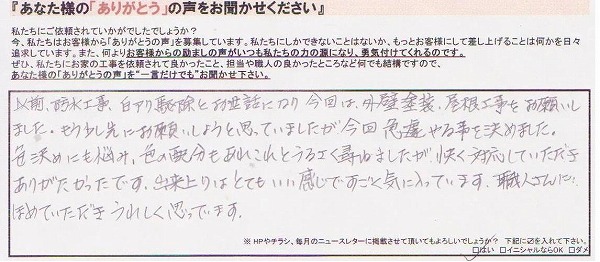 『あなた様の「ありがとう」の声をお聞かせください』
私たちにご依頼されていかがでしたでしょうか?
今、私たちはお客様から「ありがとうの声」を募集しています。私たちにしかできないことはないか、もっとお客様にして差し上げることは何かを日々
追求しています。また、何よりお客様からの励ましの声がいつも私たちの力の源になり、勇気付けてくれるのです。
ぜひ、私たちにお家の工事を依頼されて良かったこと、担当や職人の良かったところなど何でも結構ですので、
あなた様の「ありがとうの声」を"一言だけでも"お聞かせ下さい。
以前、防水工事、白アリ駆除とお世話になり今回は、外壁塗装、屋根工事をお願いし
ました。もう少し先にお願いしようと思っていましたが今回急遽やる事を決めました。
色決めにも悩み、色の配分もあれこれとうるさく尋ねましたが快く対応していただき
ありがたかったです。出来上りはとてもいい感じですごく気に入っています。職人さんに
ほめていただきうれしく思っています。
※HPやチラシ、毎月のニュースレターに掲載させて頂いてもよろしいでしょうか? 下記に☑を入れて下さい。
□はい □イニシャルならOK □ダメ